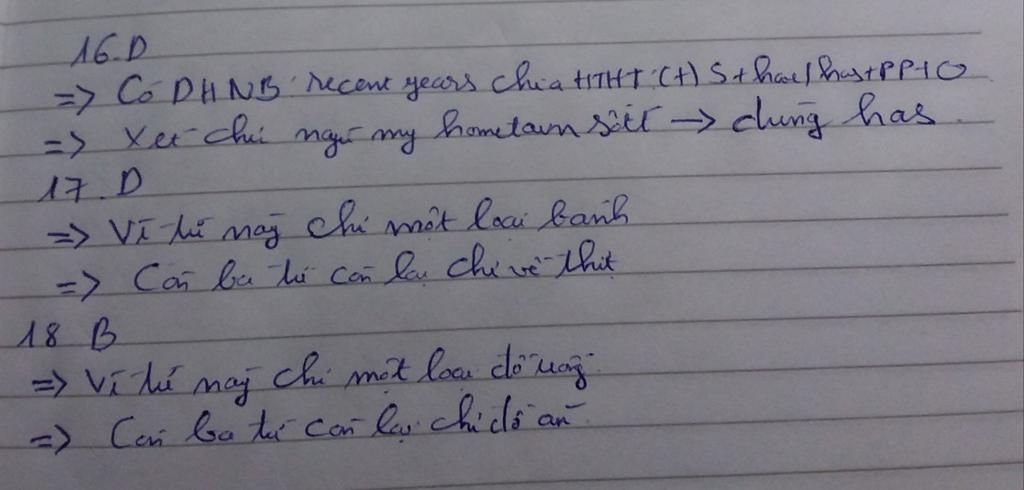 16.D
=> Có DHNB: recent years chia HTHT: (+) S + have/has + PP + O
=> Xét chủ ngữ my hometown số ít -> dùng has.
17.D
=> Vì từ này chỉ một loại bánh
=> Còn ba từ còn lại chỉ về thịt
18 B
=> Vì từ này chỉ một loại đồ uống
=> Còn ba từ còn lại chỉ đồ ăn.